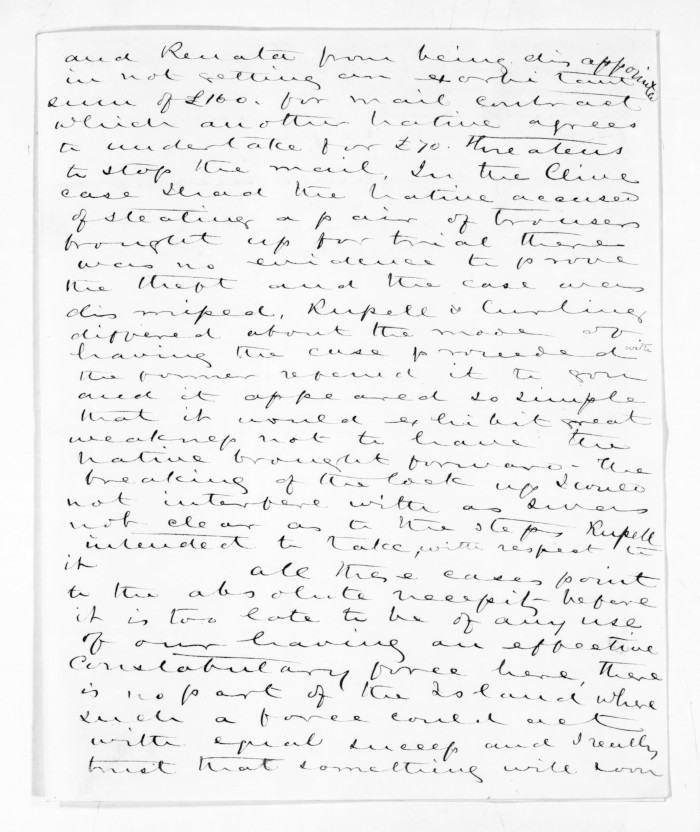 and Renata from being disappointed
in not getting an exorbitant
sum of £160. for mail contract
which another Native agrees
to undertake for £70. threatens
to stop the mail, In the Clive
case I had the Native accused
of stealing a pair of trousers
brought up for trial there
was no evidence to prove
the theft and the case was
dismissed, Russell & Curling
differed about the mode of
having the case proceeded with
the former referred it to you
and it appeared so simple
that it would exhibit great
weakness not to have the
Native brought forward - The
breaking of the lock up I would
not interfere with as I was
not clear as to the steps Russell
intended to take, with respect to
it all these cases point
to the absolute necessity before
it is too late to be of any use
of our having an effective
Constabulary force here, there
is no part of the Island where
such a force could act
with equal success and I really
trust that something will soon